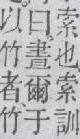 索也索訓
曰晝爾于
以竹者、竹